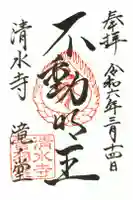 奉拝 令和六年三月十四日
不動明王
清水寺 滝之堂
清水寺